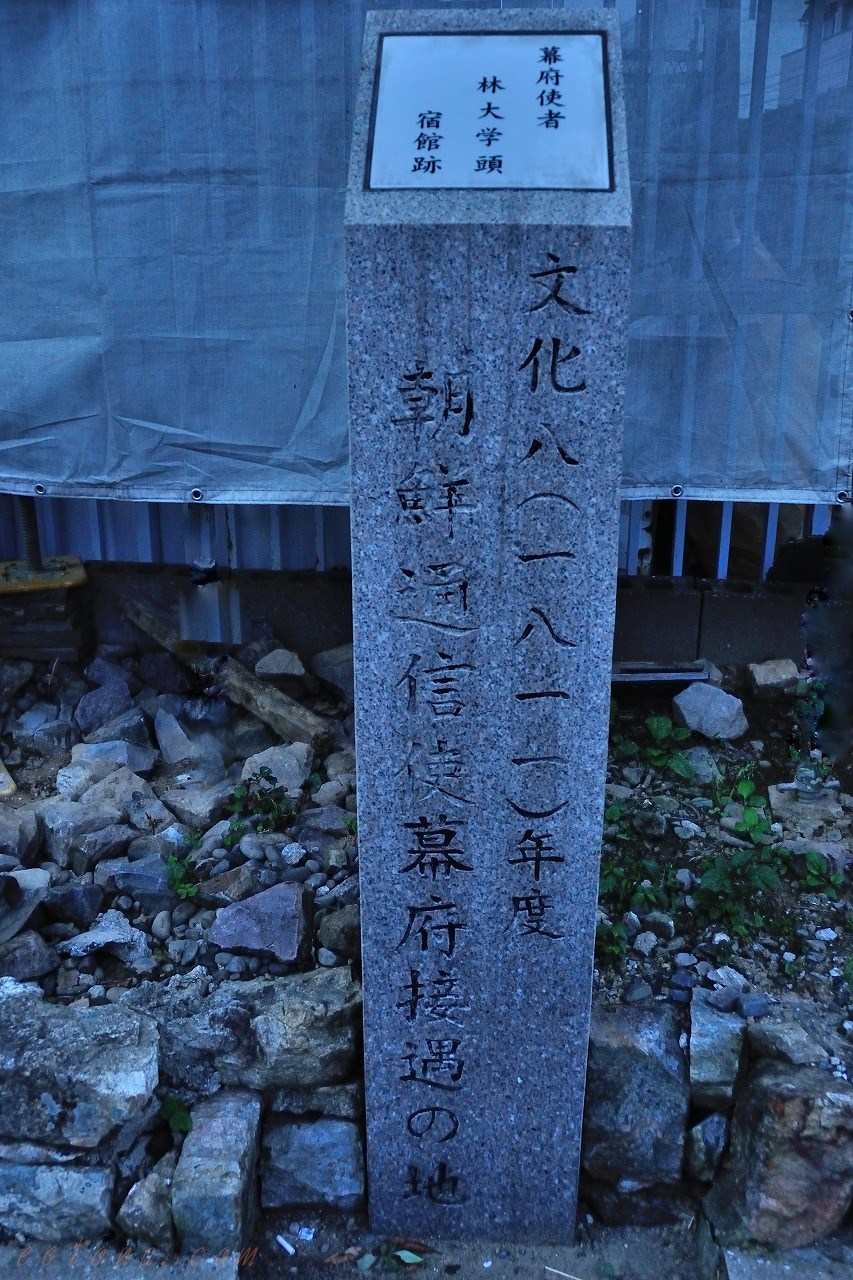 幕府使者
林大学頭
宿館跡
文化八(一八一一)年度
朝鮮通信使幕府接遇の地